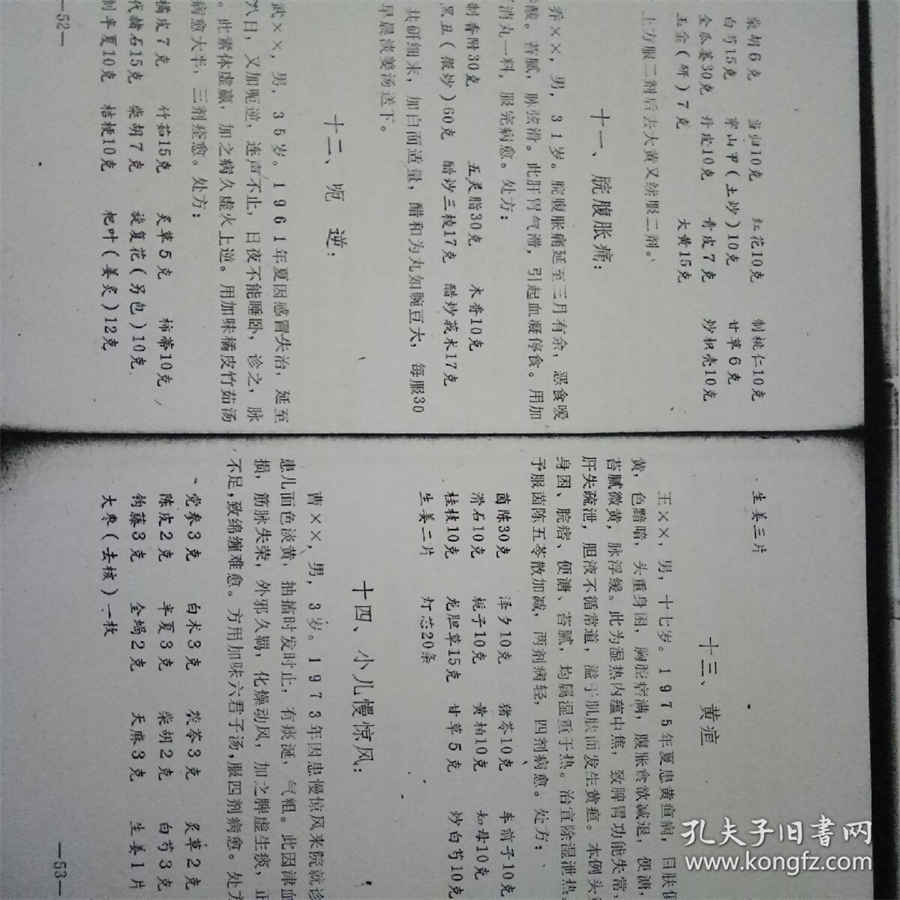 柴胡6克 当归10克 红花10克 制桃仁10克
白芍15克 穿山甲(土炒)10克 甘草6克
全瓜蒌30克 丹皮10克 青皮7克 炒枳壳10克
玉金(研)7克 大黄15克
上方服二剂后去大黄又续服二剂。
十一、脘腹胀痛:
乔××,男,31岁。脘腹胀痛延至三月有余,恶食嗳
酸。苔腻,脉弦滑。此肝胃气滞,引起血凝停食。用加
消丸一料,服完病愈。处方:
制香附30克 五灵脂30克 木香10克
黑丑(微炒)60克 醋炒三棱17克 醋炒莪术17克
共研细末,加白面适量,醋和为丸如豌豆大,每服30
早晨淡姜汤送下。
十二、呃逆:
武××,男,35岁。1961年夏因感冒失治,延至
八日,又加呃逆,连声不止,日夜不能睡卧,诊之,脉
。此素体虚羸,加之病久虚火上逆。用加味橘皮竹茹汤
病愈大半,三剂痊愈。处方:
橘皮7克 竹茹15克 炙草5克 柿蒂10克
代赭石15克 柴胡7克 旋复花(另包)10克
制半夏10克 桔梗10克 杷叶(姜炙)12克
—52—
生姜三片
十三、黄疸
王××,男,十七岁。1975年夏患黄疸病,目肤俱
黄,色黯暗,头重身困,胸脘痞满,腹胀食欲减退,便溏,
苔腻微黄,脉浮缓。此为湿热内蕴中焦,致脾胃功能失常,
肝失疏泄,胆液不循常道,溢于肌肤而发生黄疸。本例头重
身困、脘痞、便溏、苔腻,均属湿重于热。治宜除湿泄热,
予服茵陈五苓散加减,两剂病轻,四剂病愈。处方:
茵陈30克 泽夕10克 猪苓10克 车前子10克
滑石10克 栀子10克 黄柏10克 知母10克
桂枝10克 龙胆草15克 甘草5克 炒白芍10克
生姜二片 灯芯20条
十四、小儿慢惊风:
曹××,男,3岁。1973年因患慢惊风来院就诊
患儿面色淡黄,抽搐时发时止,有痰涎,气粗。此因津血
损,筋脉失荣,外邪久羁,化燥动风,加之脾虚生痰,正
不足,致绵缠难愈。方用加味六君子汤,服四剂病愈。处方
党参3克 白术3克 茯苓3克 炙草2克
陈皮2克 半夏3克 柴胡2克 白芍3克
钩藤3克 全蝎2克 天麻3克 生姜1片
大枣(去核)一枚
—53—
孔夫子旧书网
www.kongfz.com